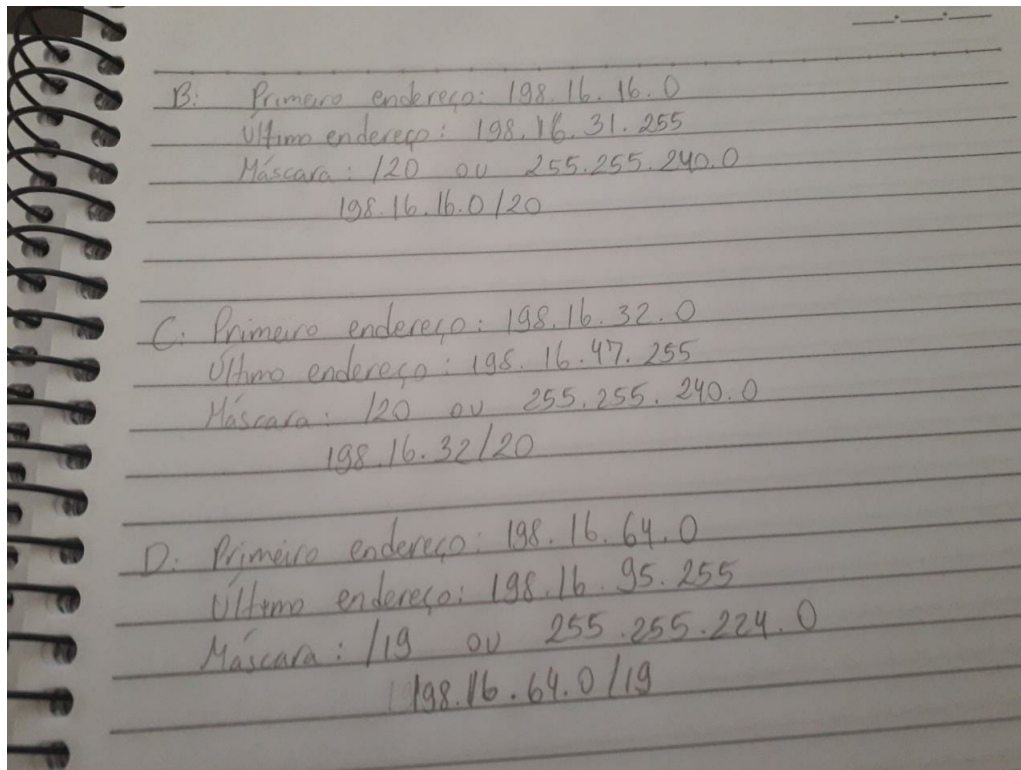 B: Primeiro endereço: 198.16.16.0
Último endereço: 198.16.31.255
Máscara: /20 ou 255.255.240.0
198.16.16.0/20
C: Primeiro endereço: 198.16.32.0
Último endereço: 198.16.47.255
Máscara: /20 ou 255.255.240.0
198.16.32/20
D: Primeiro endereço: 198.16.64.0
Último endereço: 198.16.95.255
Máscara: /19 ou 255.255.224.0
198.16.64.0/19